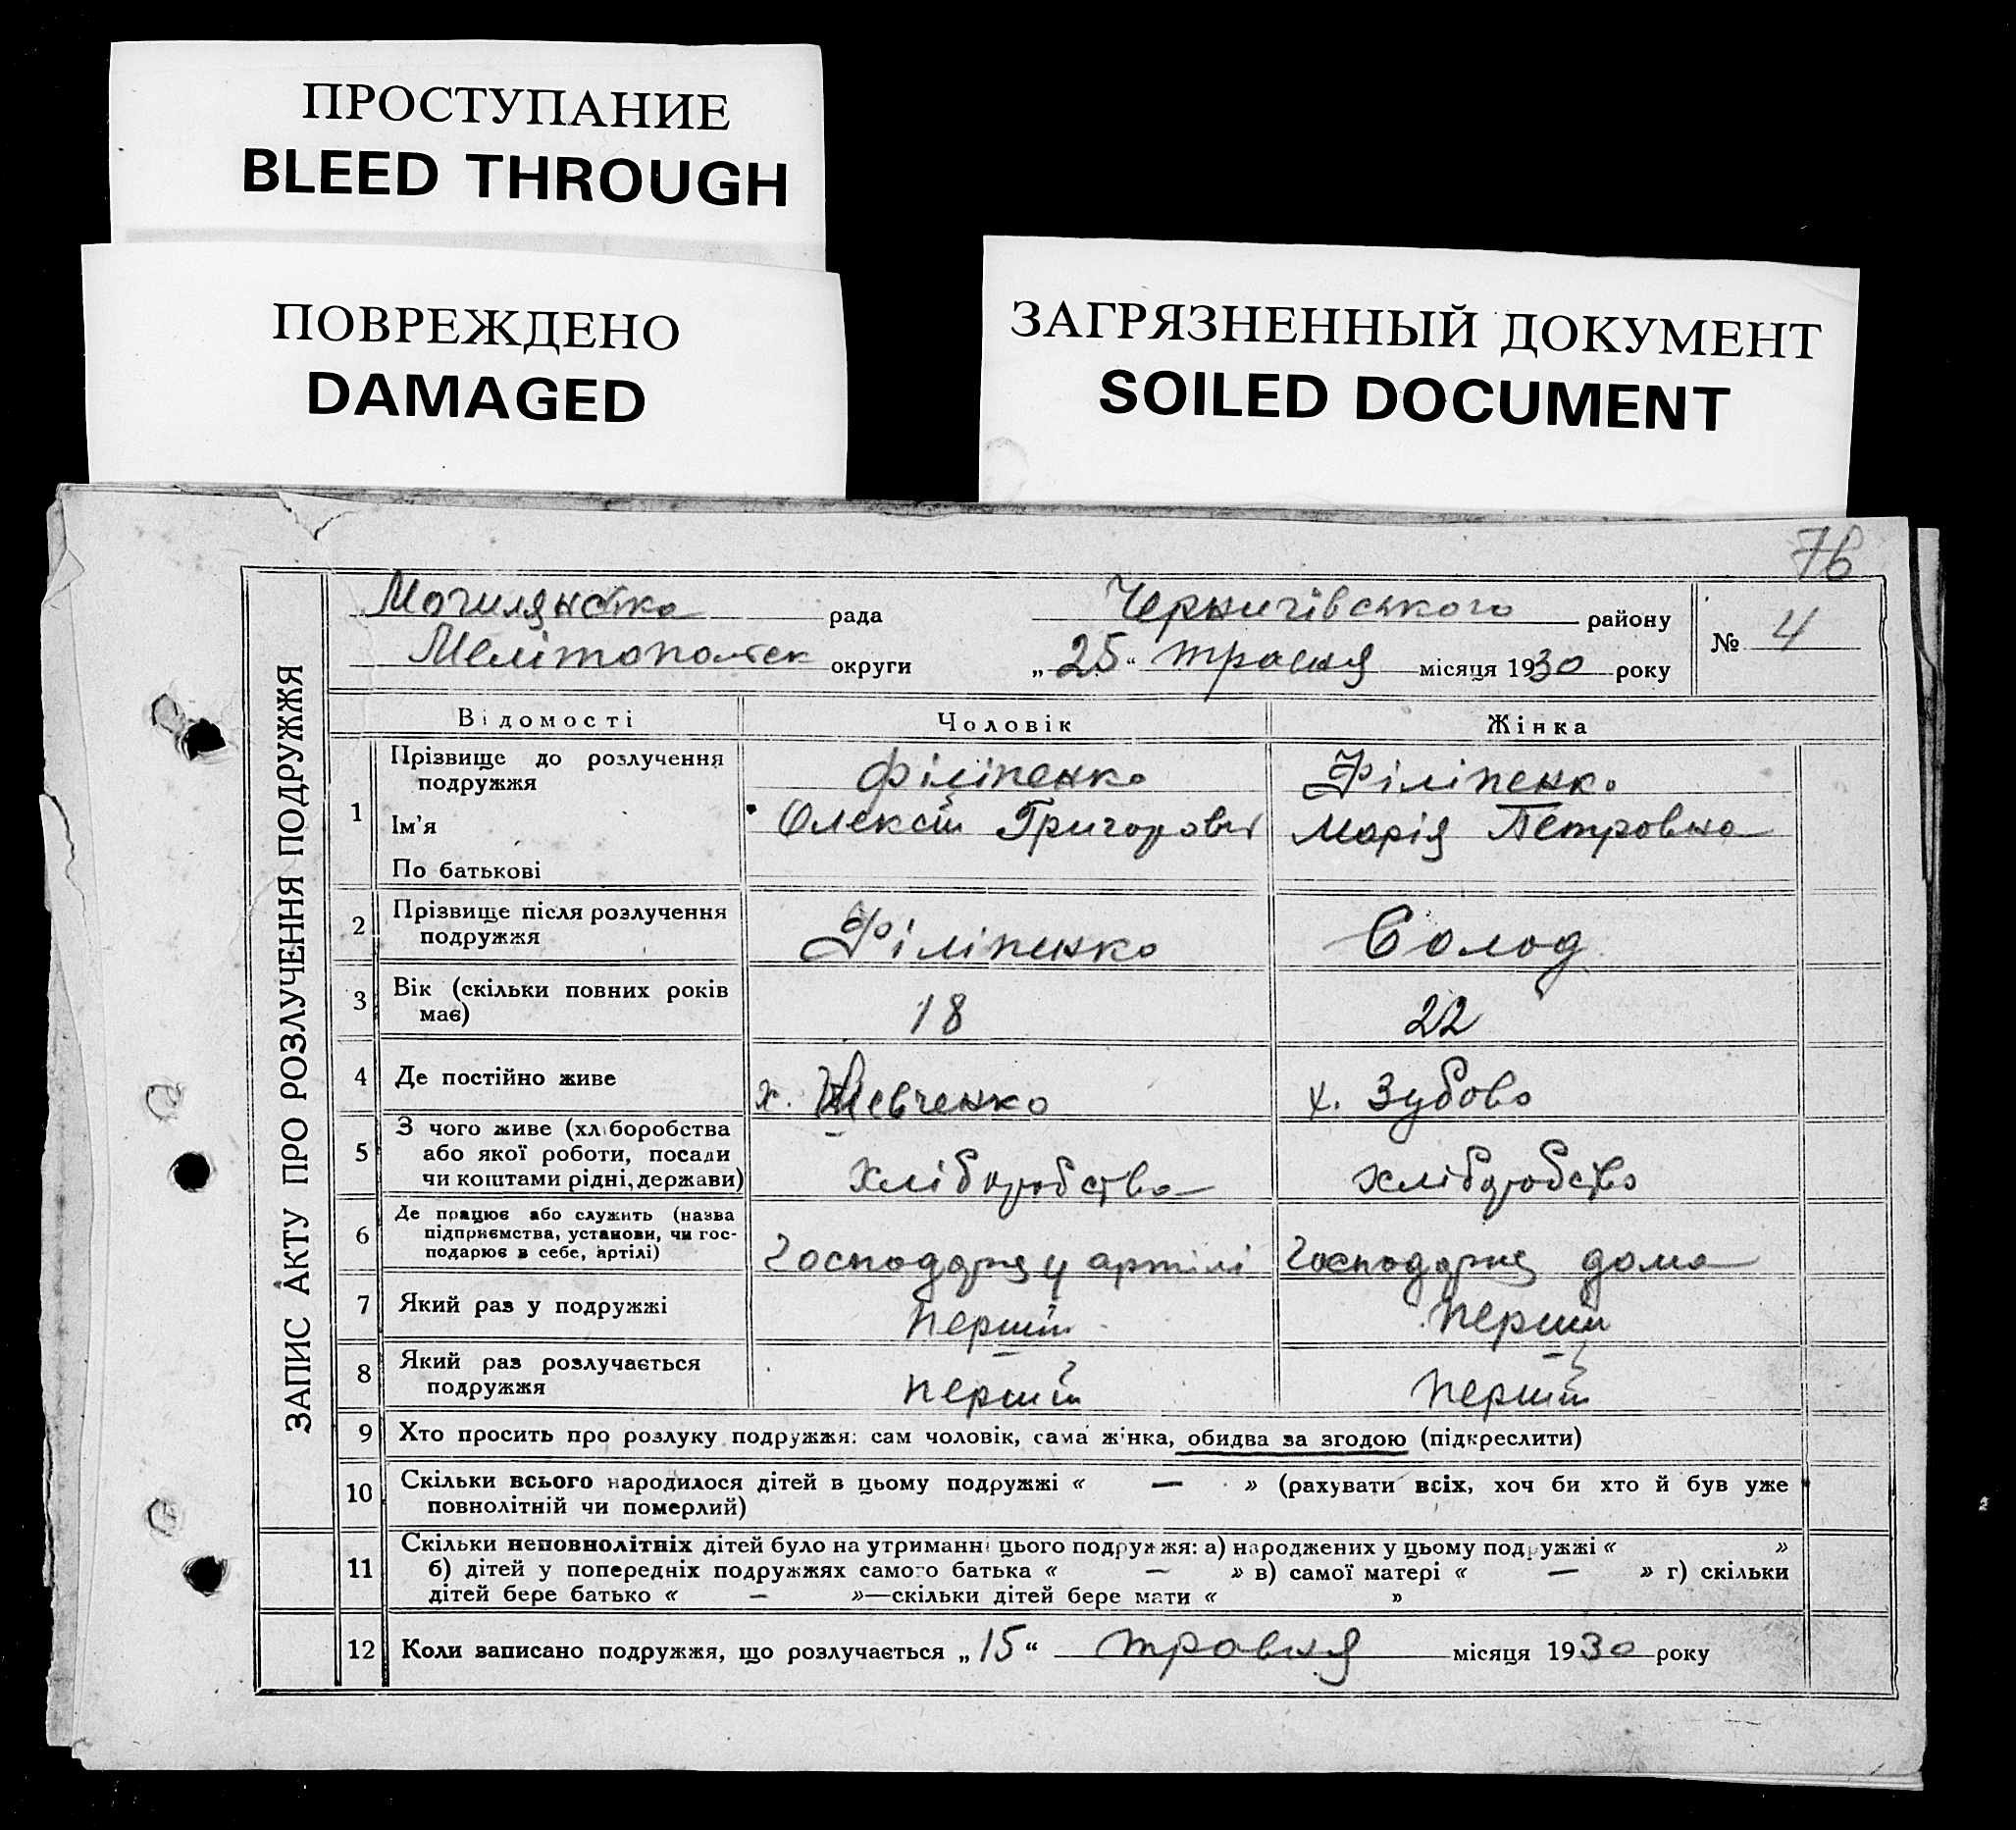 ПРОСТУПАНИЕ
BLEED THROUGH
ПОВРЕЖДЕНО
DAMAGED
ЗАГРЯЗНЕННЫЙ ДОКУМЕНТ
SOILED DOCUMENT
76
ЗАПИС АКТУ ПРО РОЗЛУЧЕННЯ ПОДРУЖЖЯ
Могилянська рада Чернигівського району
Мелітопольск округи „25“ травня місяця 1930 року
№ 4
Відомості Чоловік Жінка
1 Прізвище до розлучення подружжя Філіпенко Філіпенко
Ім'я Олексій Григорович Марія Петровна
По батькові
2 Прізвище після розлучення подружжя Філіпенко Солод
3 Вік (скільки повних років має) 18 22
4 Де постійно живе х. Шевченко х. Зубово
5 З чого живе (хліборобства або якої роботи, посади чи коштами рідні, держави) Хліборобство хліборобство
6 Де працює або служить (назва підприємства, установи, чи господарює в себе, артілі) Господаря у артілі Господарня дома
7 Який раз у подружжі перший перший
8 Який раз розлучається подружжя перший перший
9 Хто просить про розлуку подружжя: сам чоловік, сама жінка, обидва за згодою (підкреслити)
10 Скільки всього народилося дітей в цьому подружжі « — » (рахувати всіх, хоч би хто й був уже
повнолітній чи померлий)
11 Скільки неповнолітніх дітей було на утриманні цього подружжя: а) народжених у цьому подружжі « »
б) дітей у попередніх подружжях самого батька « — » в) самої матері « — » г) скільки
дітей бере батько « — »—скільки дітей бере мати « »
12 Коли записано подружжя, що розлучається „15“ травня місяця 1930 року